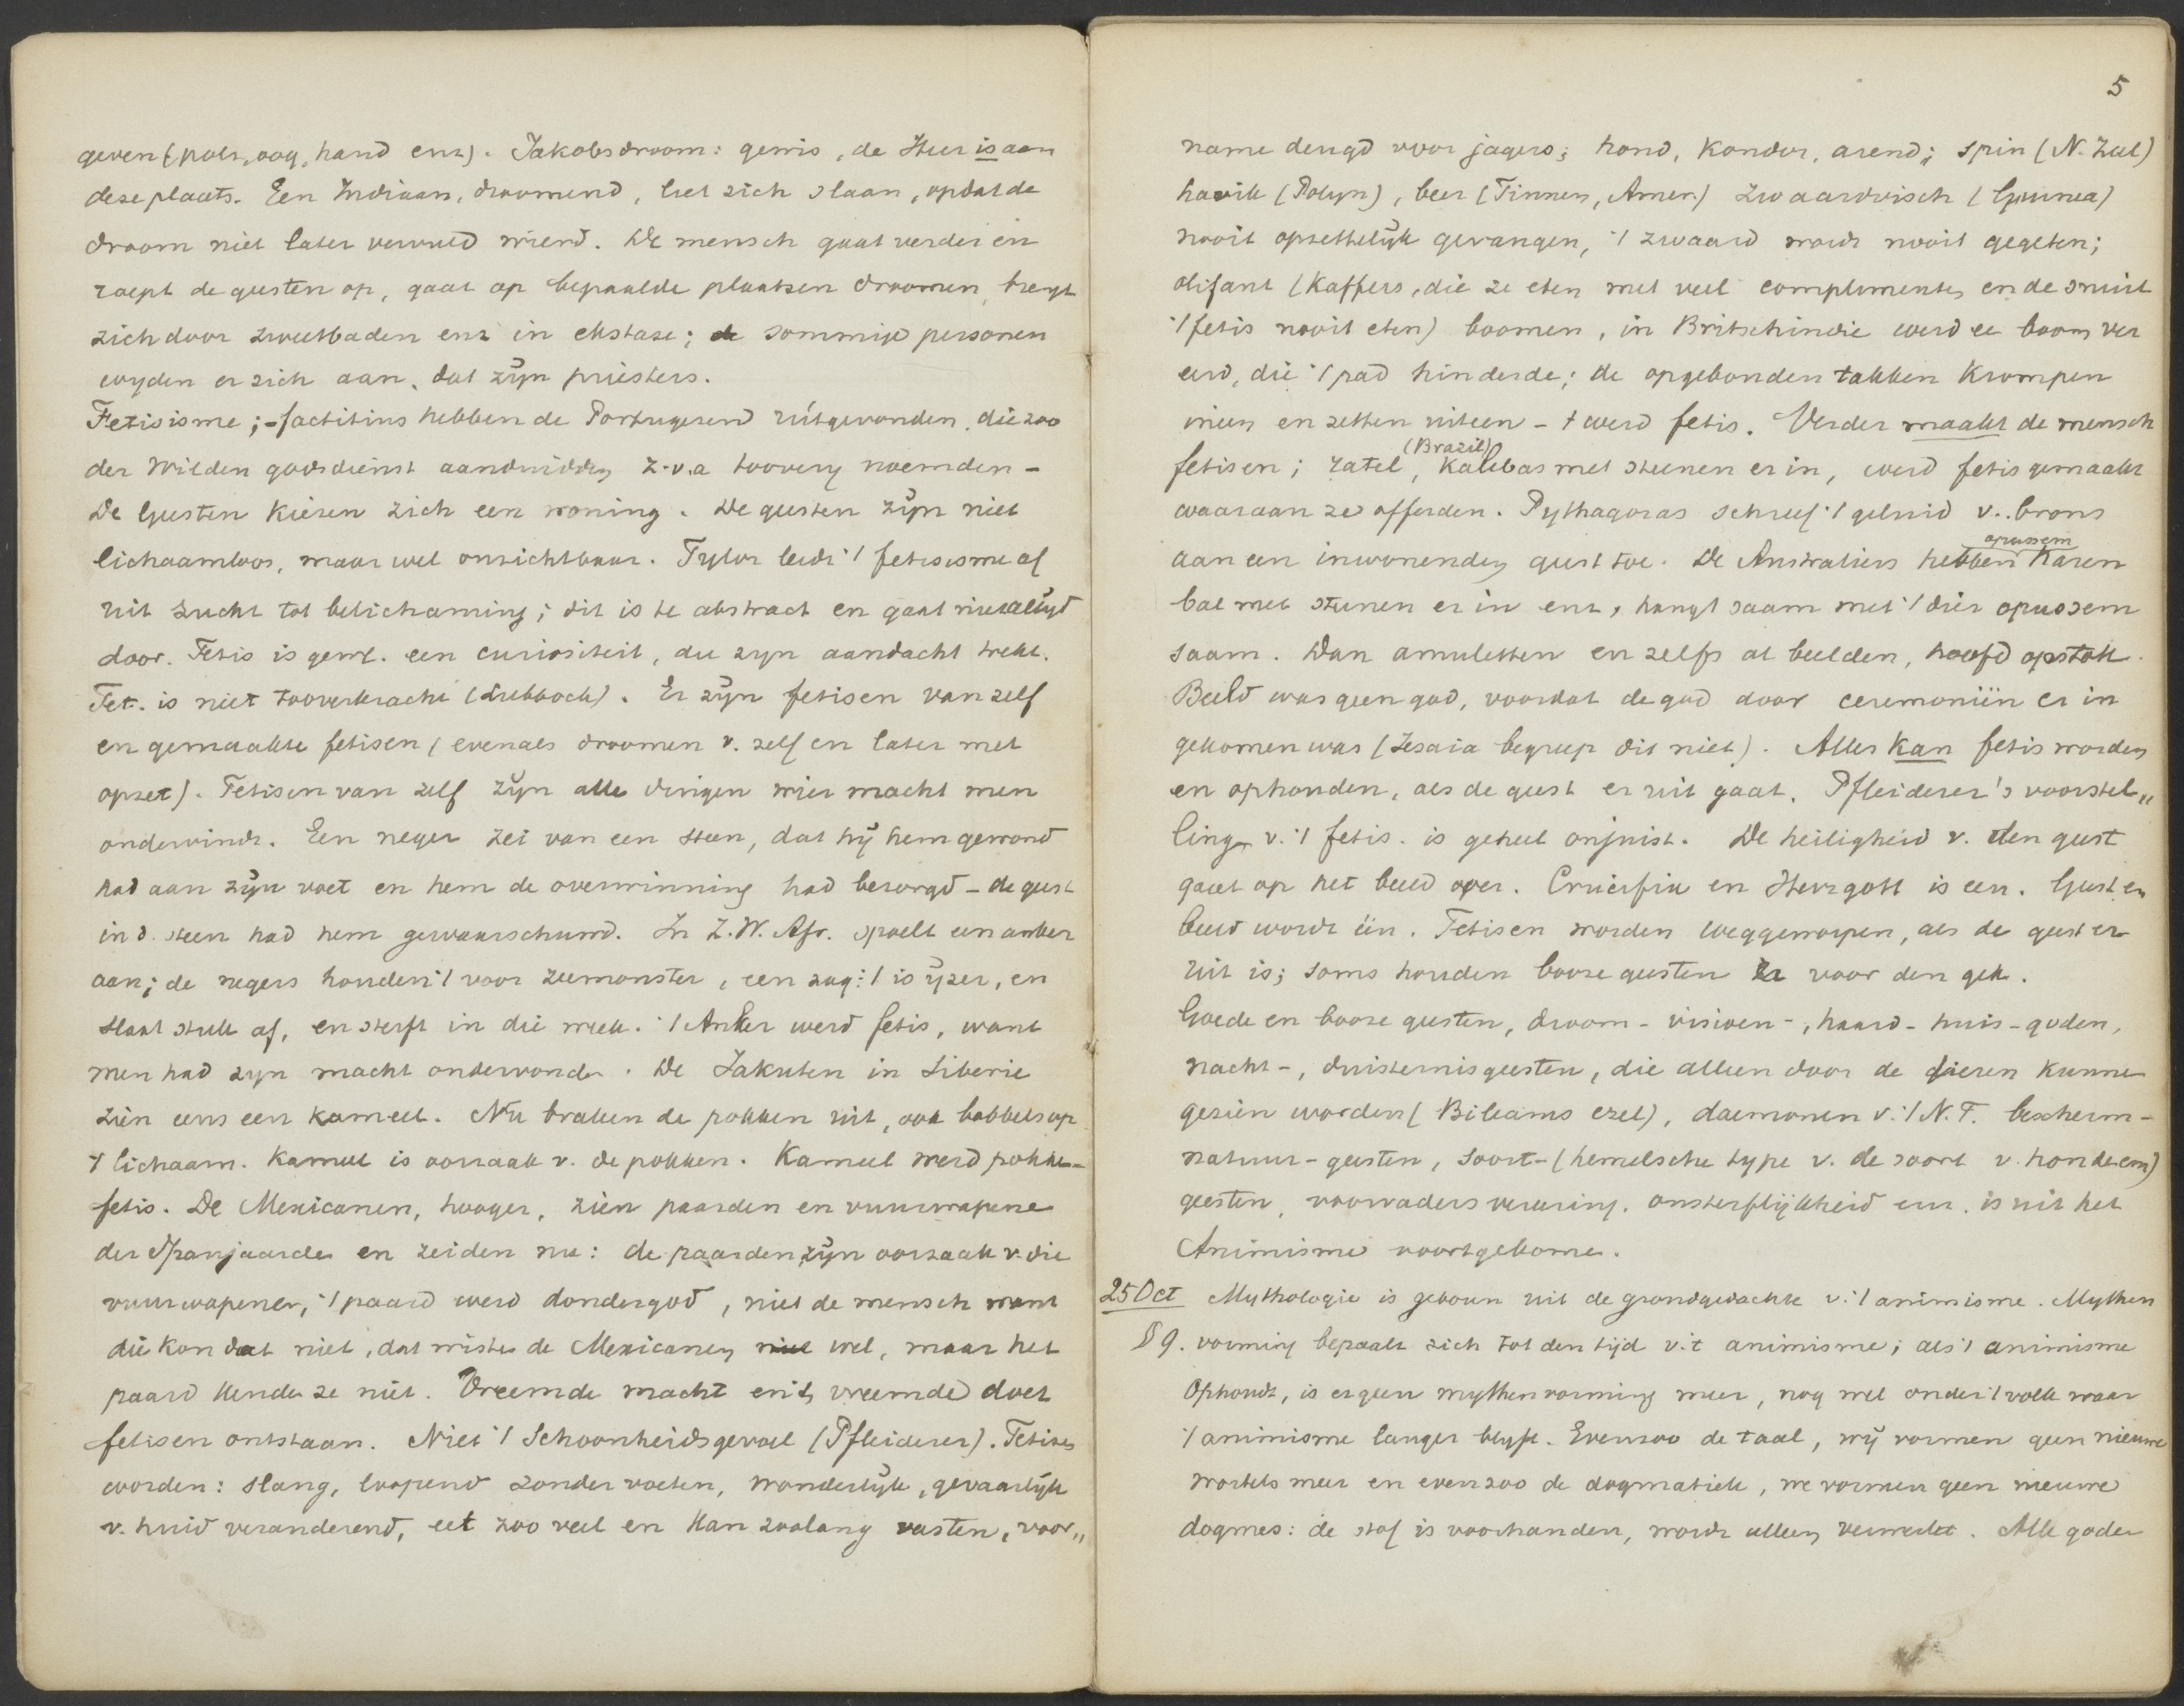 geven (pols, oog, hand enz). Jakobsdroom: gewis, de Heer is aan
deze plaats. Een Indiaan, droomend, liet zich slaan, opdat de
droom niet later vervuld wierd. De mensch gaat verder en
roept de geesten op, gaat op bepaalde plaatsen droomen, brengt
zich door zweetbaden enz in ekstase; sommige personen
wyden er zich aan, dat zijn priesters.
Fetisisme; - factitius hebben de Portugezen uitgevonden, die zoo
der Wilden godsdienst aanduidden z.v.a toovery noemden -
De Geesten kiezen zich een woning. De geesten zijn niet
lichaamloos, maar wel onzichtbaar. Tylor leidt 't fetisisme af
uit zucht tot belichaming; dit is te abstract en gaat niet altijd
door. Fetis is gew. een curiositeit, die zyn aandacht trekt.
Fet. is niet tooverkracht (Lubbock). Er zijn fetisen van zelf
en gemaakte fetisen (evenals droomen v. zelf en later met
opzet). Fetisen van zelf zijn alle dingen wier macht men
ondervindt. Een neger zei van een steen, dat hij hem gewond
had aan zijn voet en hem de overwinning had bezorgd - de geest
in d. steen had hem gewaarschuwd. In Z.W. Afr. spoelt een anker
aan; de negers houden 't voor zeemonster, een zag: 't is ijzer, en
slaat stuk af, en sterft in die week. 't Anker werd fetis, want
men had zyn macht ondervonden. De Jakuten in Siberie
zien eens een kameel. Nu braken de pokken uit, ook bobbels op
't lichaam. Kameel is oorzaak v. de pokken. Kameel werd pokken-
fetis. De Mexicanen, hooger, zien paarden en vuurwapene
der Spanjaarde en zeiden nu: de paarden zijn oorzaak v. die
vuurwapenen, 't paard werd dondergod, niet de mensch want
die kon dat niet, dat wisten de Mexicanen wel, maar het
paard kende ze niet. Vreemde macht en iets vreemds doet
fetisen ontstaan. Niet 't Schoonheidsgevoel (Pfleiderer). Fetisen
worden: slang, loopend zonder voeten, wonderlijk, gevaarlijk
v. huid veranderend, eet zoo veel en kan zoolang vasten, voor„
5
name deugd voor jagers; hond, kondor, arend; spin (N. Zeel)
havik (Polyn), beer (Finnen, Amer.) zwaardvisch (Guinea)
nooit opzettelijk gevangen, 't zwaard wordt nooit gegeten;
olifant (Kaffers, die ze eten met veel complimenten en de snuit
't fetis nooit eten) boomen, in Britschindie werd ee boom ver
eerd, die 't pad hinderde; de opgebonden takken krompen
ineen en zetten uiteen - 't werd fetis. Verder maakt de mensch
fetisen; zatel, (Brazil) Kalebas met steenen er in, werd fetis gemaakt
waaraan ze offerden. Pythagoras schreef 't geluid v. brons
aan een inwonenden geest toe. De Australiers hebben opussem haren
bal met steenen er in enz, hangt saam met 't dier opussem
saam. Dan amuletten en zelfs al beelden, hoofd op stok.
Beeld was geen god, voordat de god door ceremoniën er in
gekomen was (Jesaia begreep dit niet). Alles kan fetis worden
en ophouden, als de geest er uit gaat. Pfleiderer's voorstel„
ling v. 't fetis. is geheel onjuist. De heiligheid v. den geest
gaat op het beeld over. Crucifix en Herrgott is een. Geest en
beeld wordt één. Fetisen worden weggeworpen, als de geest er
uit is; soms houden booze geesten ze voor den gek.
Goede en booze geesten, droom- visioen-, haard- huis-goden,
nacht-, duisternisgeesten, die alleen door de dieren kunne
gezien worden (Bileams ezel), daemonen v. 't N.T. bescherm-
natuur-geesten, soort- (hemelsche type v. de soort v. honden enz)
geesten, voorvadersvereering, onsterflijkheid enz. is uit het
Animisme voortgekome.
25 Oct Mythologie is geboren uit de grondgedachte v. 't animisme. Mythen
§ 9. vorming bepaalt zich tot den tijd v. 't animisme; als 't animisme
Ophoudt, is er geen mythenvorming meer, nog wel onder 't volk waar
't animisme langer blyft. Evenzoo de taal, wij vormen geen nieuwe
wortels meer en evenzoo de dogmatiek, we vormen geen nieuwe
dogmes: de stof is voorhanden, wordt alleen verwerkt. Alle goden